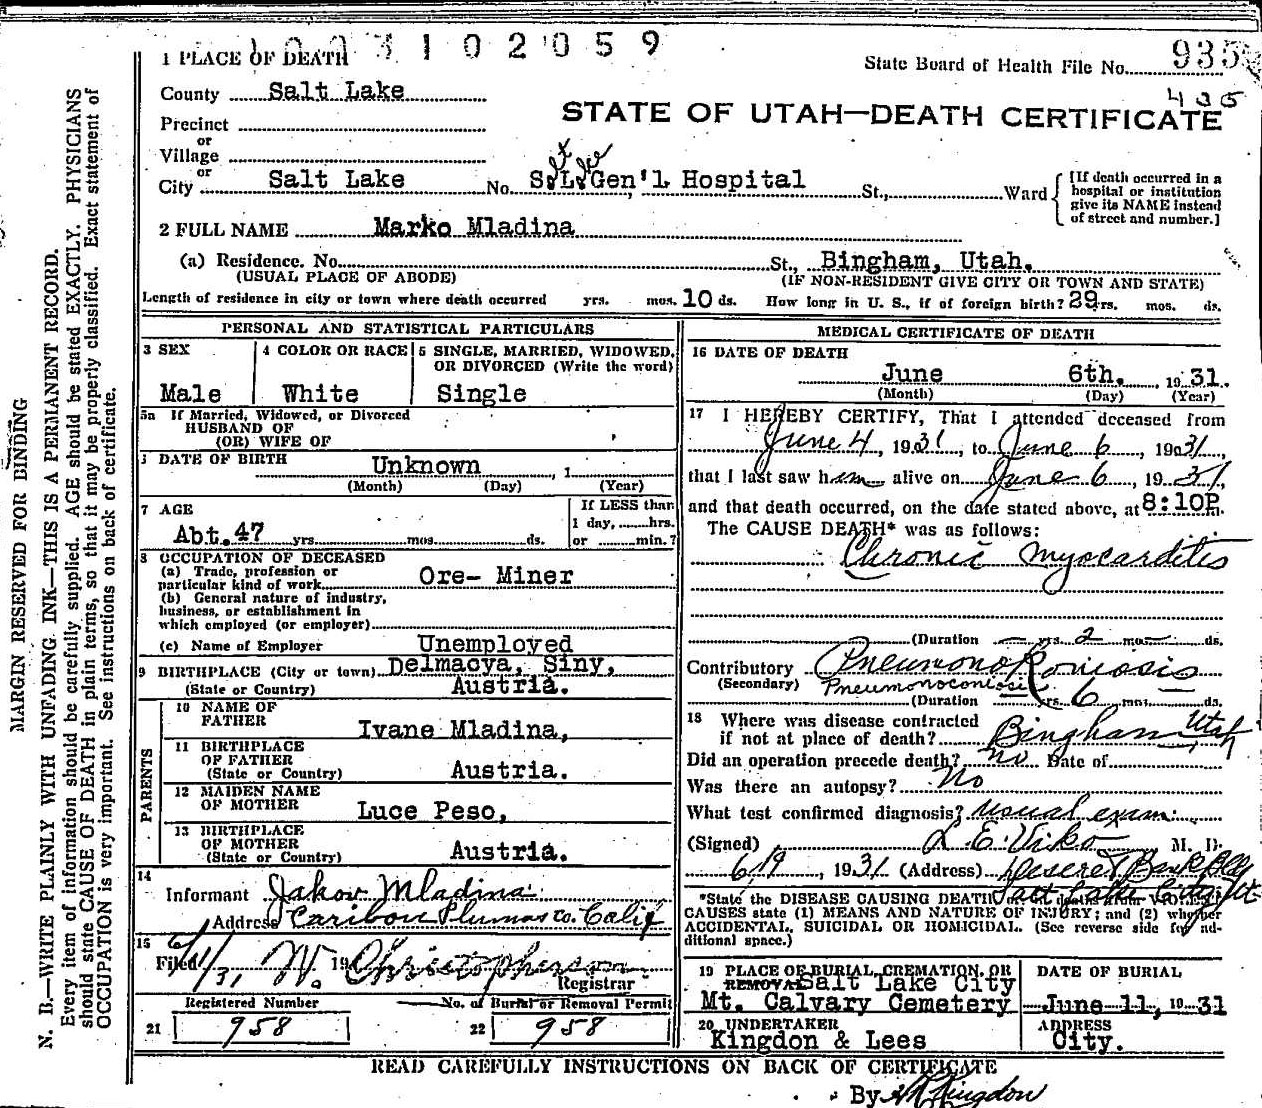 1 0 0 3 1 0 2 0 5 9
1 PLACE OF DEATH
State Board of Health File No. 935
435
County Salt Lake
STATE OF UTAH—DEATH CERTIFICATE
Precinct
or
Village
or
City Salt Lake No. S.L. Gen'l Hospital St., Ward
[If death occurred in a hospital or institution give its NAME instead of street and number.]
2 FULL NAME Marko Mladina
(a) Residence. No. St., Bingham, Utah.
(USUAL PLACE OF ABODE) (IF NON-RESIDENT GIVE CITY OR TOWN AND STATE)
Length of residence in city or town where death occurred yrs. mos. 10 ds. How long in U. S., if of foreign birth? 29 yrs. mos. ds.
PERSONAL AND STATISTICAL PARTICULARS
3 SEX
Male
4 COLOR OR RACE
White
5 SINGLE, MARRIED, WIDOWED,
OR DIVORCED (Write the word)
Single
5a If Married, Widowed, or Divorced
HUSBAND OF
(OR) WIFE OF
DATE OF BIRTH Unknown , 1
(Month) (Day) (Year)
7 AGE
Abt. 47 yrs. mos. ds.
If LESS than
1 day, hrs.
or min.?
8 OCCUPATION OF DECEASED
(a) Trade, profession or
particular kind of work Ore- Miner
(b) General nature of industry,
business, or establishment in
which employed (or employer)
(c) Name of Employer Unemployed
9 BIRTHPLACE (City or town) Delmacya, Siny,
(State or Country) Austria.
PARENTS
10 NAME OF
FATHER Ivane Mladina,
11 BIRTHPLACE
OF FATHER
(State or Country) Austria.
12 MAIDEN NAME
OF MOTHER Luce Peso,
13 BIRTHPLACE
OF MOTHER
(State or Country) Austria.
14
Informant Jakov Mladina
Address Caribou Plumas Co. Calif
15
Filed 6/11/31 19 W. Christopherson
Registrar
Registered Number No. of Burial or Removal Permit
21 958 22 958
MEDICAL CERTIFICATE OF DEATH
16 DATE OF DEATH
June 6th. , 19 31.
(Month) (Day) (Year)
17 I HEREBY CERTIFY, That I attended deceased from
June 4, 1931, to June 6, 1931,
that I last saw him alive on June 6, 1931,
and that death occurred, on the date stated above, at 8:10P.m.
The CAUSE DEATH* was as follows:
Chronic myocarditis
(Duration — yrs. 2 mos. — ds.
Contributory Pneumonokoniosis
(Secondary) Pneumonoconiosis
(Duration — yrs. 6 mos. — ds.
18 Where was disease contracted
if not at place of death? Bingham Utah
Did an operation precede death? no Date of
Was there an autopsy? No
What test confirmed diagnosis? usual exam.
(Signed) L. E. Viko M. D.
6/9, 1931 (Address) Deseret Bank Bldg
Salt Lake City, Ut.
*State the DISEASE CAUSING DEATH, deaths from VIOLENT
CAUSES state (1) MEANS AND NATURE OF INJURY; and (2) whether
ACCIDENTAL, SUICIDAL OR HOMICIDAL. (See reverse side for additional space.)
19 PLACE OF BURIAL, CREMATION, OR
REMOVAL Salt Lake City
Mt. Calvary Cemetery
DATE OF BURIAL
June 11, 19 31
20 UNDERTAKER
Kingdon & Lees
ADDRESS
City.
READ CAREFULLY INSTRUCTIONS ON BACK OF CERTIFICATE
By Kingdon
MARGIN RESERVED FOR BINDING
N. B.—WRITE PLAINLY WITH UNFADING INK—THIS IS A PERMANENT RECORD.
Every item of information should be carefully supplied. AGE should be stated EXACTLY. PHYSICIANS
should state CAUSE OF DEATH in plain terms, so that it may be properly classified. Exact statement of
OCCUPATION is very important. See instructions on back of certificate.